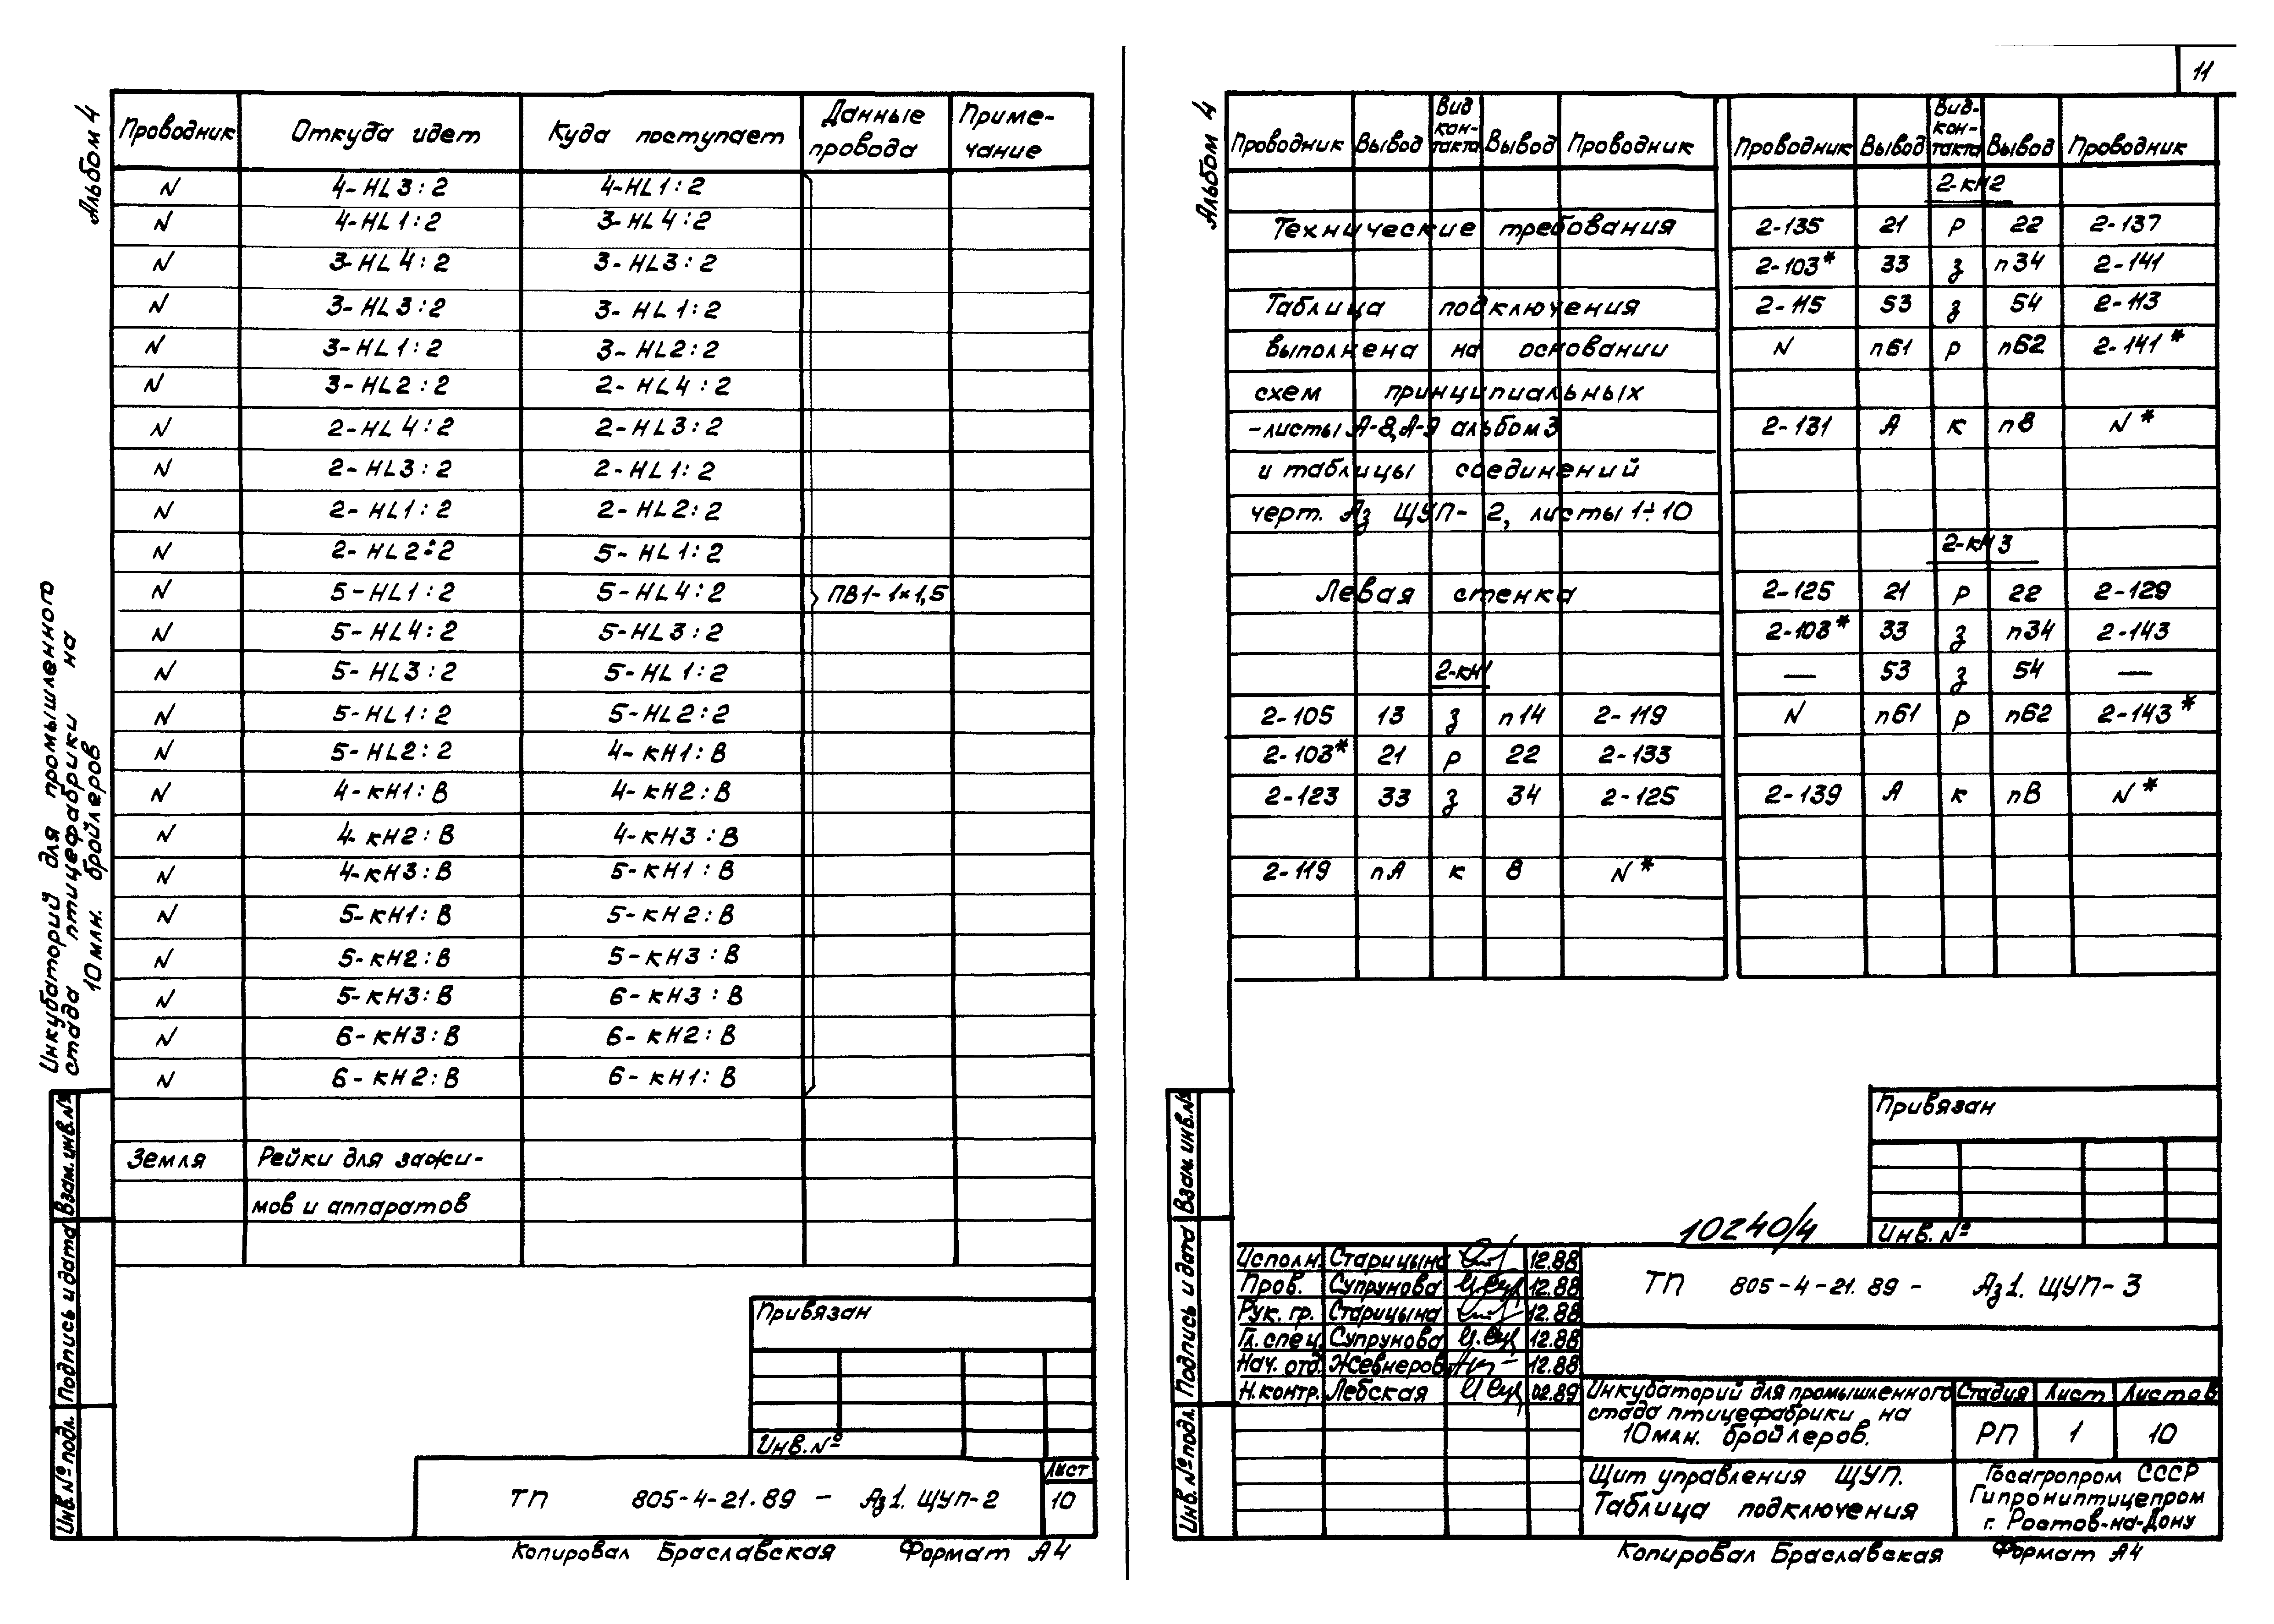 Альбом 4
Проводник Откуда идет Куда поступает Данные провода Примечание
N 4-HL3:2 4-HL1:2
N 4-HL1:2 3-HL4:2
N 3-HL4:2 3-HL3:2
N 3-HL3:2 3-HL1:2
N 3-HL1:2 3-HL2:2
N 3-HL2:2 2-HL4:2
N 2-HL4:2 2-HL3:2
N 2-HL3:2 2-HL1:2
N 2-HL1:2 2-HL2:2
N 2-HL2:2 5-HL1:2
N 5-HL1:2 5-HL4:2 ПВ1-1×1,5
N 5-HL4:2 5-HL3:2
N 5-HL3:2 5-HL1:2
N 5-HL1:2 5-HL2:2
N 5-HL2:2 4-кН1:В
N 4-кН1:В 4-кН2:В
N 4-кН2:В 4-кН3:В
N 4-кН3:В 5-кН1:В
N 5-кН1:В 5-кН2:В
N 5-кН2:В 5-кН3:В
N 5-кН3:В 6-кН3:В
N 6-кН3:В 6-кН2:В
N 6-кН2:В 6-кН1:В
Земля Рейки для зажи-
мов и аппаратов
Инкубаторий для промышленного
стада птицефабрики на
10 млн. бройлеров
Взам. инв. №
Подпись и дата
Инв. № подл.
Привязан
Инв. №
ТП 805-4-21.89 - Аз1. ЩУП-2
Лист
10
Копировал Браславская Формат А4
11
Альбом 4
Проводник Вывод Вид кон-такта Вывод Проводник
Технические требования
Таблица подключения
выполнена на основании
схем принципиальных
-листы А-8,А-9 альбом 3
и таблицы соединений
черт. Аз ЩУП-2, листы 1÷10
Левая стенка
2-кН1
2-105 13 з п14 2-119
2-103* 21 р 22 2-133
2-123 33 з 34 2-125
2-119 пА к В N*
Проводник Вывод Вид-кон-такта Вывод Проводник
2-кН2
2-135 21 р 22 2-137
2-103* 33 з п34 2-141
2-115 53 з 54 2-113
N п61 р п62 2-141*
2-131 А к пВ N*
2-кН3
2-125 21 р 22 2-129
2-103* 33 з п34 2-143
— 53 з 54 —
N п61 р п62 2-143*
2-139 А к пВ N*
Взам. инв. №
Подпись и дата
Инв. № подл.
Привязан
Инв. №
10240/4
Исполн. Старицына 12.88
Пров. Супрунова 12.88
Рук. гр. Старицына 12.88
Гл. спец. Супрунова 12.88
Нач. отд. Жевнеров 12.88
Н. контр. Лебская 02.89
ТП 805-4-21.89 - Аз1. ЩУП-3
Инкубаторий для промышленного
стада птицефабрики на
10 млн. бройлеров.
Стадия Лист Листов
РП 1 10
Щит управления ЩУП.
Таблица подключения
Госагропром СССР
Гипрониптицепром
г. Ростов-на-Дону
Копировал Браславская Формат А4